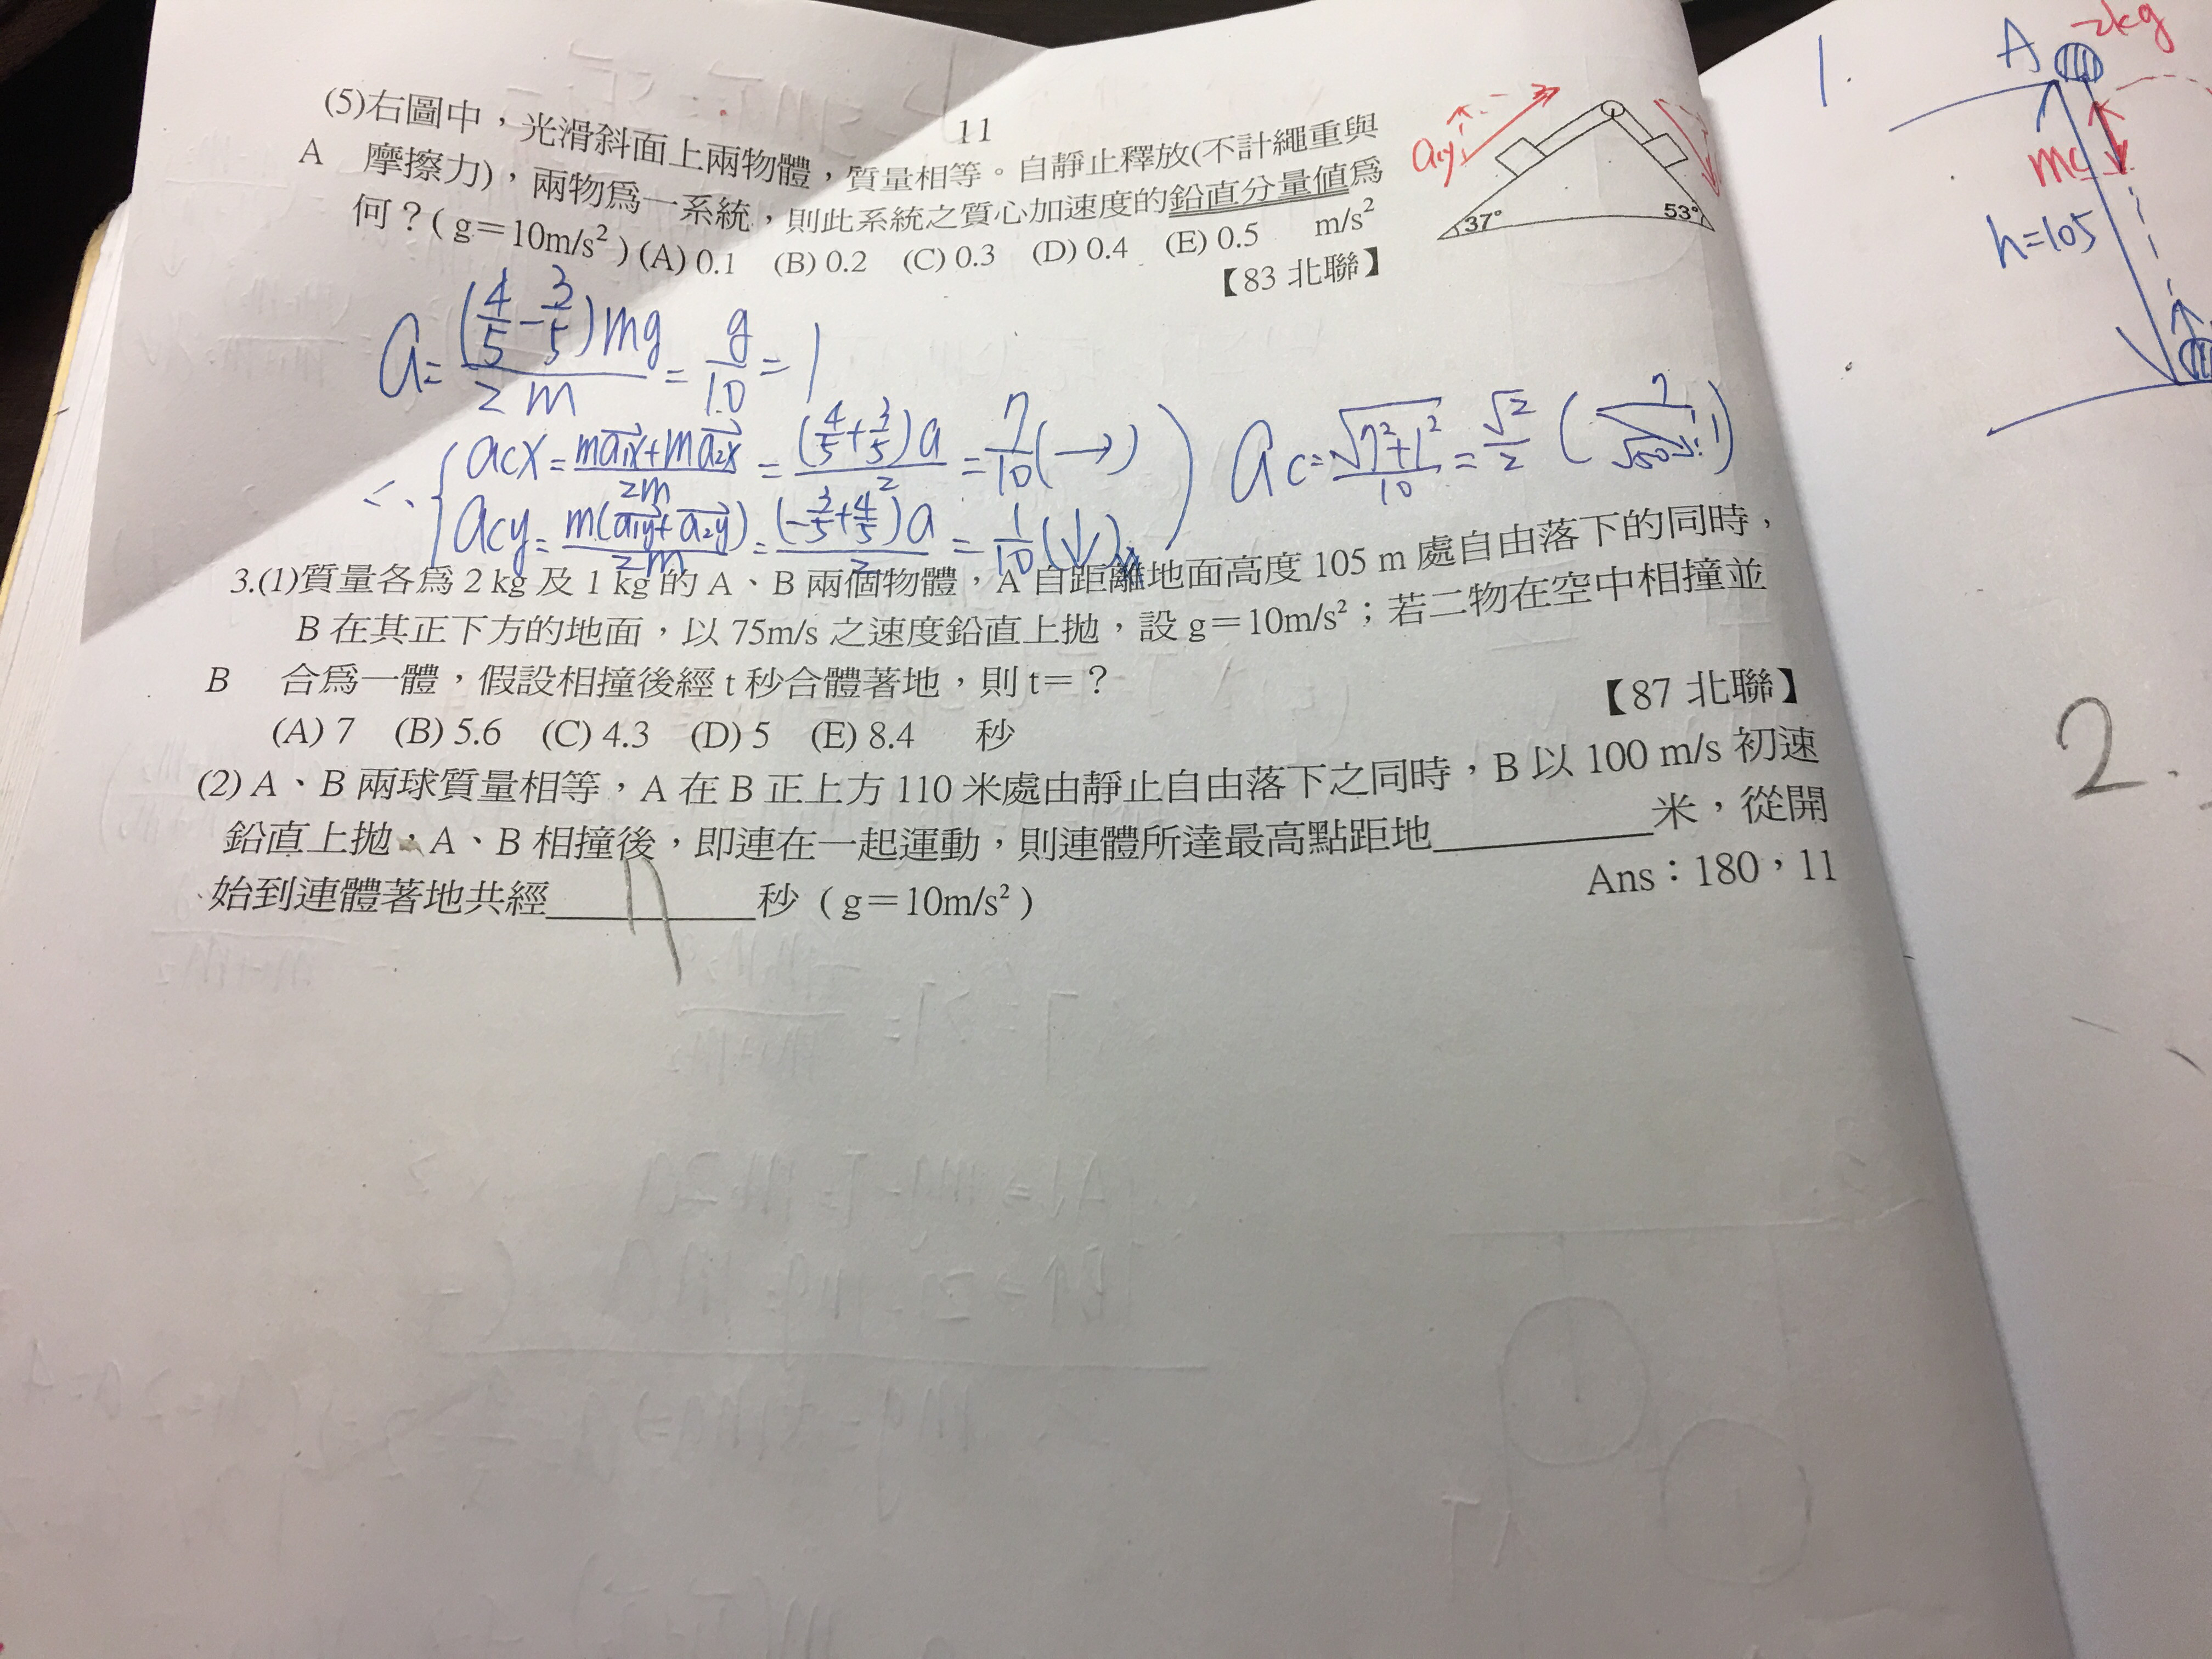 11
(5)右圖中，光滑斜面上兩物體，質量相等。自靜止釋放(不計繩重與
A 摩擦力)，兩物爲一系統，則此系統之質心加速度的鉛直分量値爲
何？( g＝10m/s² ) (A) 0.1 (B) 0.2 (C) 0.3 (D) 0.4 (E) 0.5 m/s²
【83 北聯】
37° 53°
acy
a = (4/5 - 3/5)mg / 2m = g/10 = 1
∴ { acx = (ma₁x + ma₂x) / 2m = (4/5 + 3/5)a / 2 = 7/10 (→)
acy = m(a₁y + a₂y) / 2m = (-3/5 + 4/5)a / 2 = 1/10 (↓)
ac = √(7² + 1²) / 10 = √2 / 2 ( 7 √50 1 )
3.(1)質量各爲 2 kg 及 1 kg 的 A、B 兩個物體，A 自距離地面高度 105 m 處自由落下的同時，
B 在其正下方的地面，以 75m/s 之速度鉛直上拋，設 g＝10m/s²；若二物在空中相撞並
B 合爲一體，假設相撞後經 t 秒合體著地，則 t＝？
【87 北聯】
(A) 7 (B) 5.6 (C) 4.3 (D) 5 (E) 8.4 秒
(2) A、B 兩球質量相等，A 在 B 正上方 110 米處由靜止自由落下之同時，B 以 100 m/s 初速
鉛直上拋，A、B 相撞後，即連在一起運動，則連體所達最高點距地________米，從開
始到連體著地共經________秒 ( g＝10m/s² )
Ans：180，11
1.
A 2kg
mg
h=105
2.